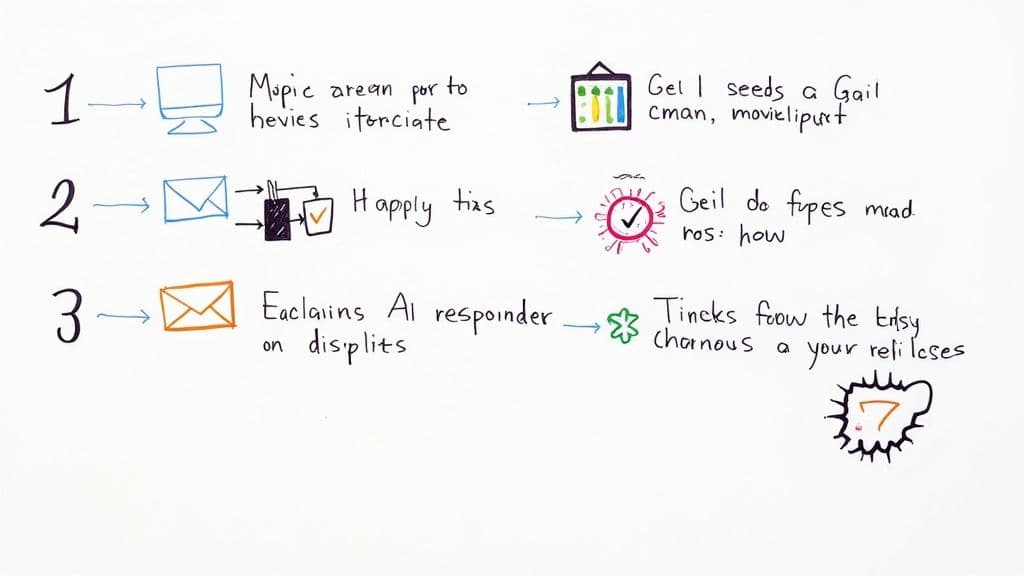 1
Mopic arean por to
hevies itorciate
Gel l seeds a Gail
cman, moviclipurt
2
H apply tias
Geil do fypes mead
ros: how
3
Eaclains AI responder
on displits
Tincks foow the
Chornous a your refi lcses
7